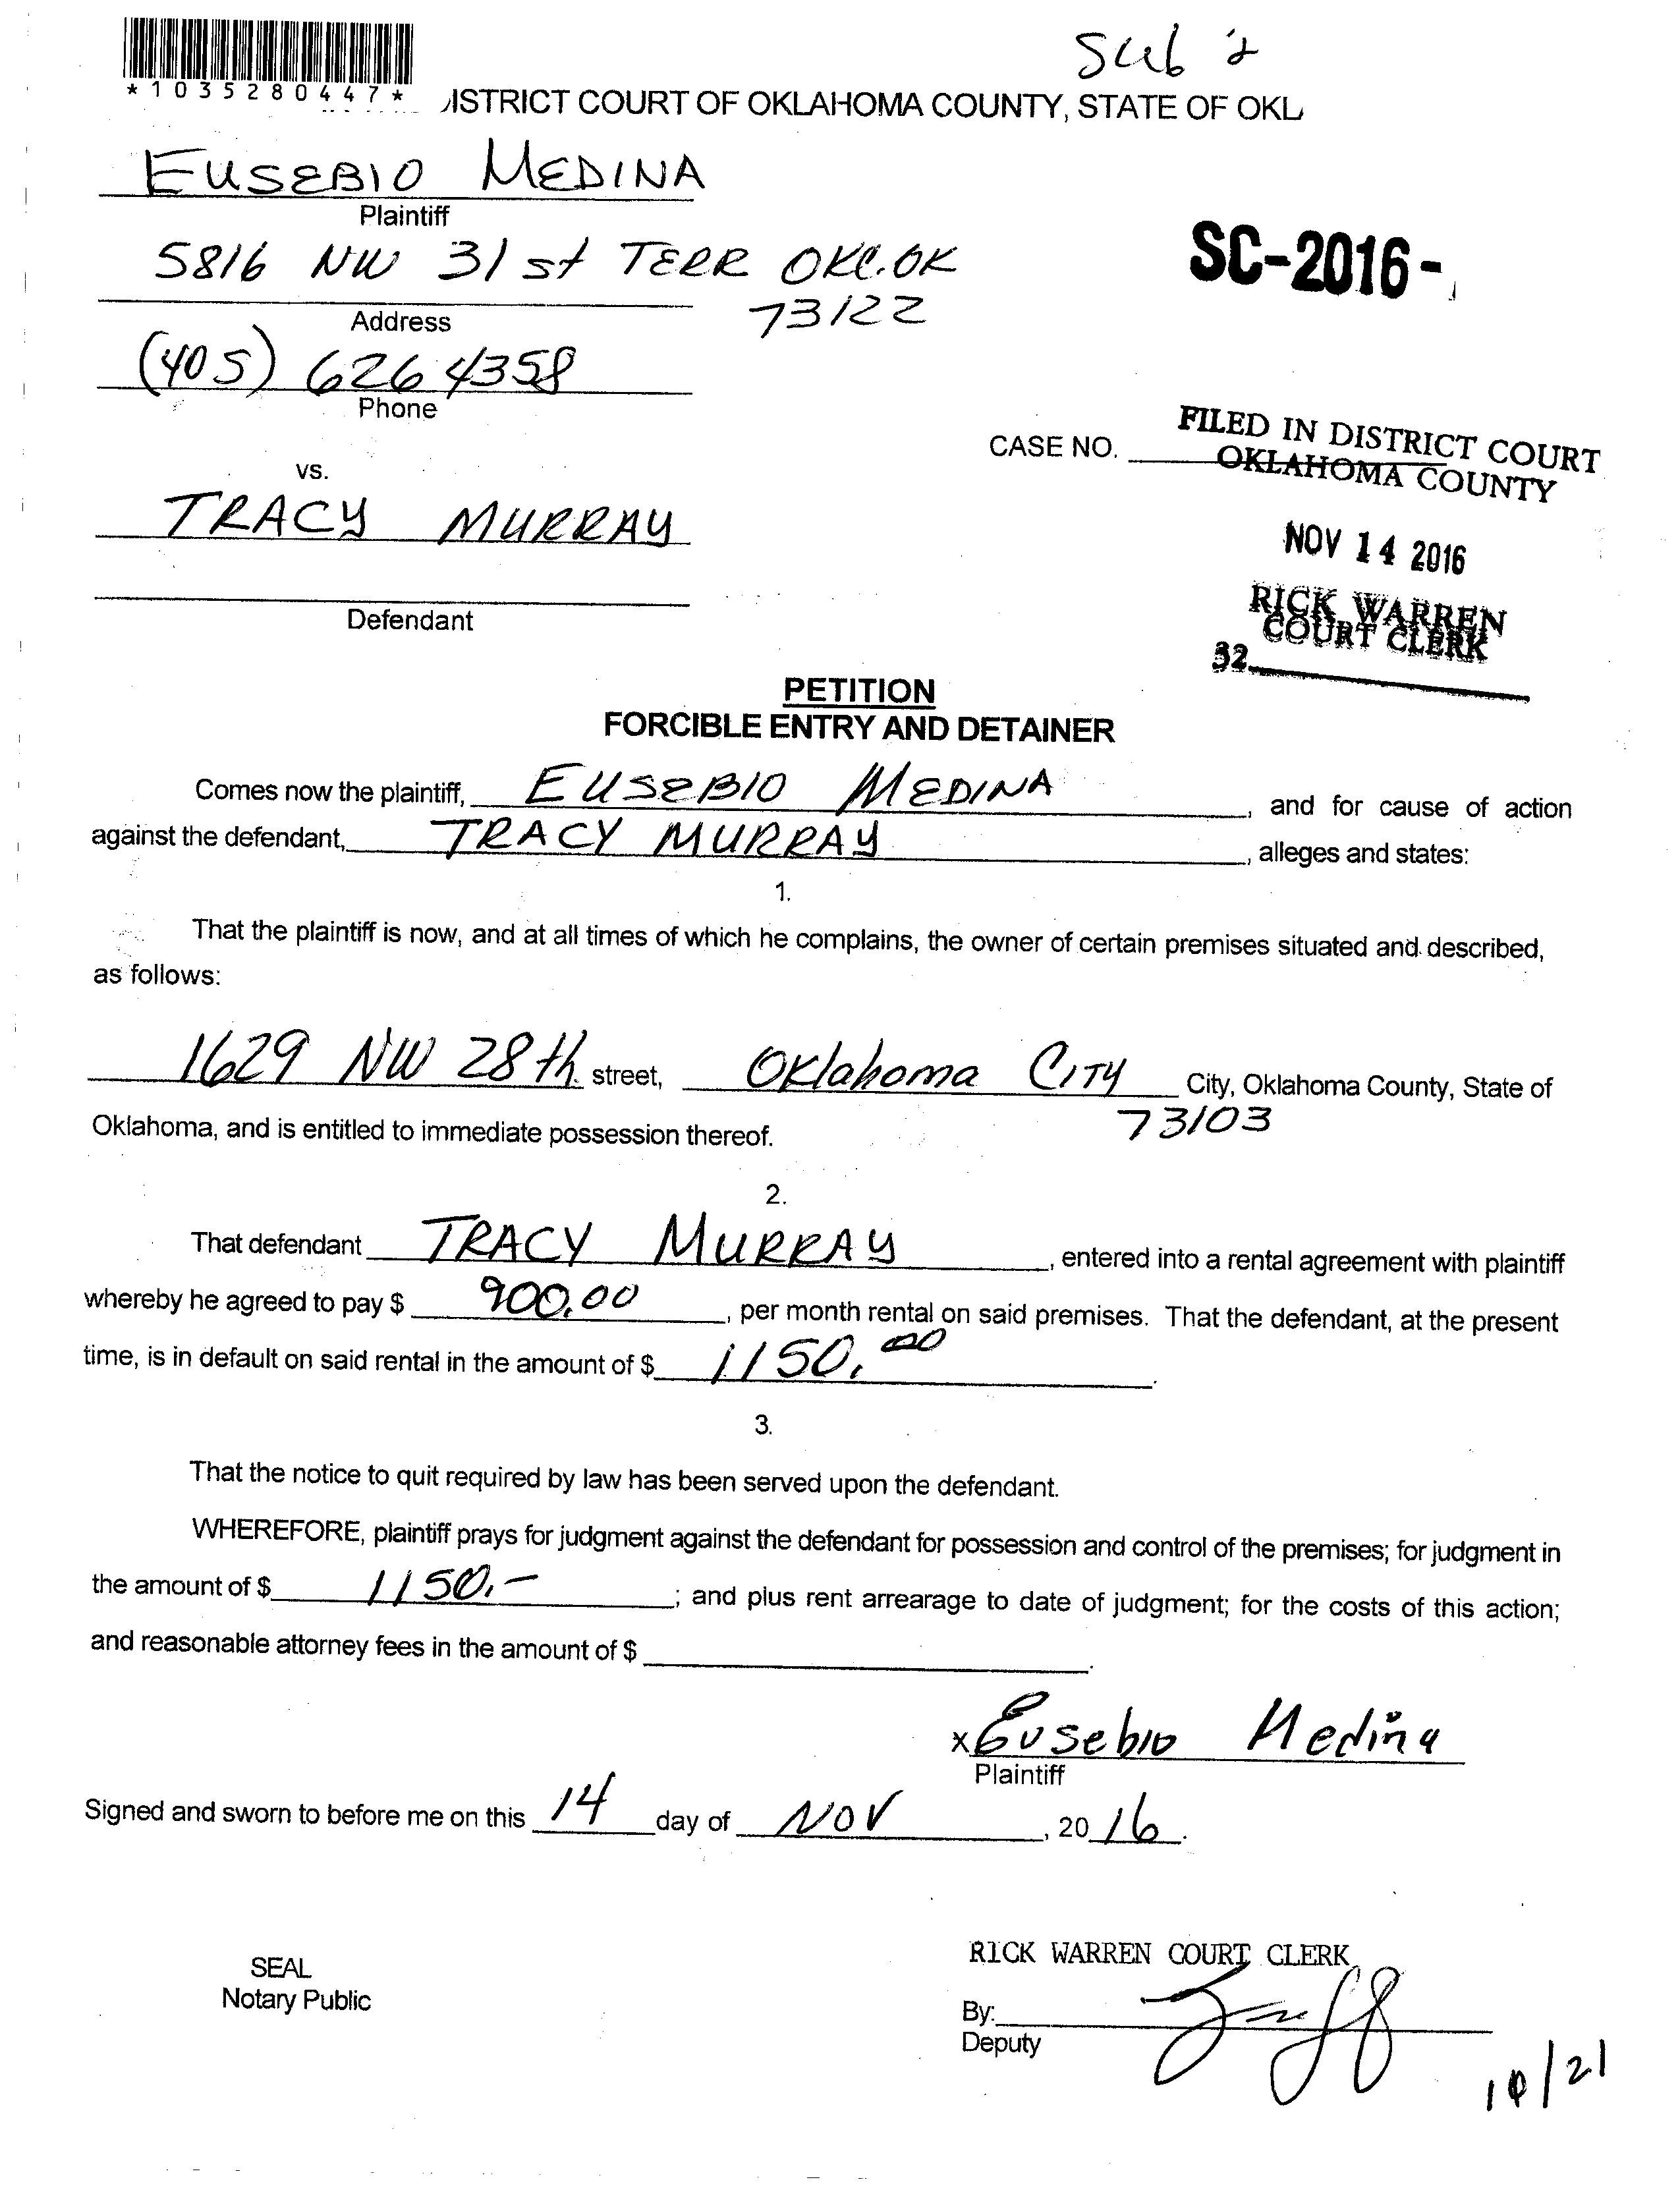 Sub 2
*1035280447*
ISTRICT COURT OF OKLAHOMA COUNTY, STATE OF OKL
EUSEBIO MEDINA
Plaintiff
5816 NW 31st TERR OKC.OK
73122
Address
SC-2016-
(405) 626 4358
Phone
FILED IN DISTRICT COURT
OKLAHOMA COUNTY
CASE NO.
vs.
TRACY MURRAY
NOV 14 2016
Defendant
RICK WARREN
COURT CLERK
32
PETITION
FORCIBLE ENTRY AND DETAINER
Comes now the plaintiff, EUSEBIO MEDINA, and for cause of action
against the defendant, TRACY MURRAY, alleges and states:
1.
That the plaintiff is now, and at all times of which he complains, the owner of certain premises situated and described,
as follows:
1629 NW 28th street, Oklahoma CITY City, Oklahoma County, State of
73103
Oklahoma, and is entitled to immediate possession thereof.
2.
That defendant TRACY MURRAY, entered into a rental agreement with plaintiff
whereby he agreed to pay $ 900.00, per month rental on said premises. That the defendant, at the present
time, is in default on said rental in the amount of $ 1150.00.
3.
That the notice to quit required by law has been served upon the defendant.
WHEREFORE, plaintiff prays for judgment against the defendant for possession and control of the premises; for judgment in
the amount of $ 1150.-; and plus rent arrearage to date of judgment; for the costs of this action;
and reasonable attorney fees in the amount of $ .
x Eusebio Medina
Plaintiff
Signed and sworn to before me on this 14 day of NOV, 20 16.
SEAL
Notary Public
RICK WARREN COURT CLERK
By:
Deputy